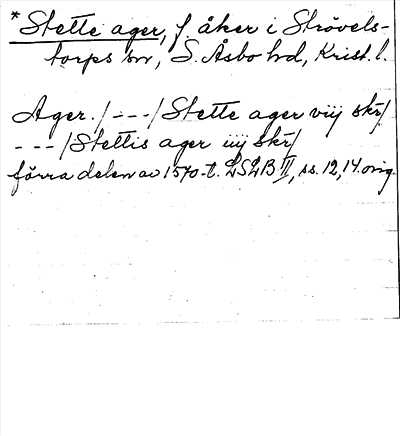 * Stette ager, f. åker i Strövels-
torps sn, S. Åsbo hd, Krist. l.
Ager. /---/ Stette ager viij skr/
---/ Stettis ager iiij skr/
förra delen av 1570-t. LSLB III, ss. 12, 14. orig.